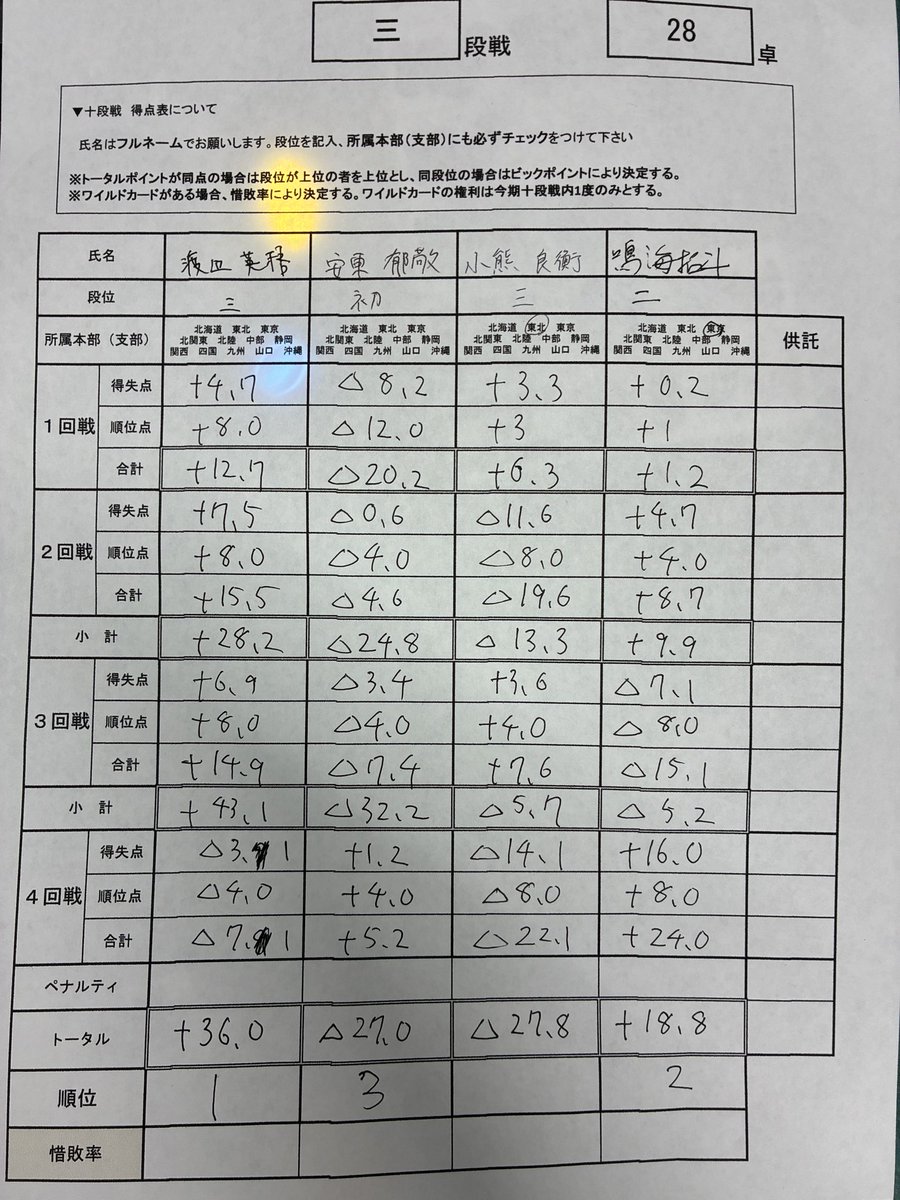 三 段戦 28 卓
▼十段戦 得点表について
氏名はフルネームでお願いします。段位を記入、所属本部(支部)にも必ずチェックをつけて下さい
※トータルポイントが同点の場合は段位が上位の者を上位とし、同段位の場合はビックポイントにより決定する。
※ワイルドカードがある場合、惜敗率により決定する。ワイルドカードの権利は今期十段戦内1度のみとする。
氏名 安東 郁敬 小熊 良衡 鳴海拓斗
段位 三 初 三 二
北海道 東北 東京 北海道 東北 東京 北海道 東北 東京 北海道 東北 東京
所属本部(支部) 北関東 北陸 中部 静岡 北関東 北陸 中部 静岡 北関東 北陸 中部 静岡 北関東 北陸 中部 静岡 供託
関西 四国 九州 山口 沖縄 関西 四国 九州 山口 沖縄 関西 四国 九州 山口 沖縄 関西 四国 九州 山口 沖縄
得失点 +4.7 △8.2 +3.3 +0.2
1回戦 順位点 +8.0 △12.0 +3 +1
合計 +12.7 △20.2 +6.3 +1.2
得失点 +7.5 △0.6 △11.6 +4.7
2回戦 順位点 +8.0 △4.0 △8.0 +4.0
合計 +15.5 △4.6 △19.6 +8.7
小 計 +28.2 △24.8 △13.3 +9.9
得失点 +6.9 △3.4 +3.6 △7.1
3回戦 順位点 +8.0 △4.0 +4.0 △8.0
合計 +14.9 △7.4 +7.6 △15.1
小 計 +43.1 △32.2 △5.7 △5.2
得失点 △3.1 +1.2 △14.1 +16.0
4回戦 順位点 △4.0 +4.0 △8.0 +8.0
合計 △7.1 +5.2 △22.1 +24.0
ペナルティ
トータル +36.0 △27.0 △27.8 +18.8
順位 1 3 2
惜敗率